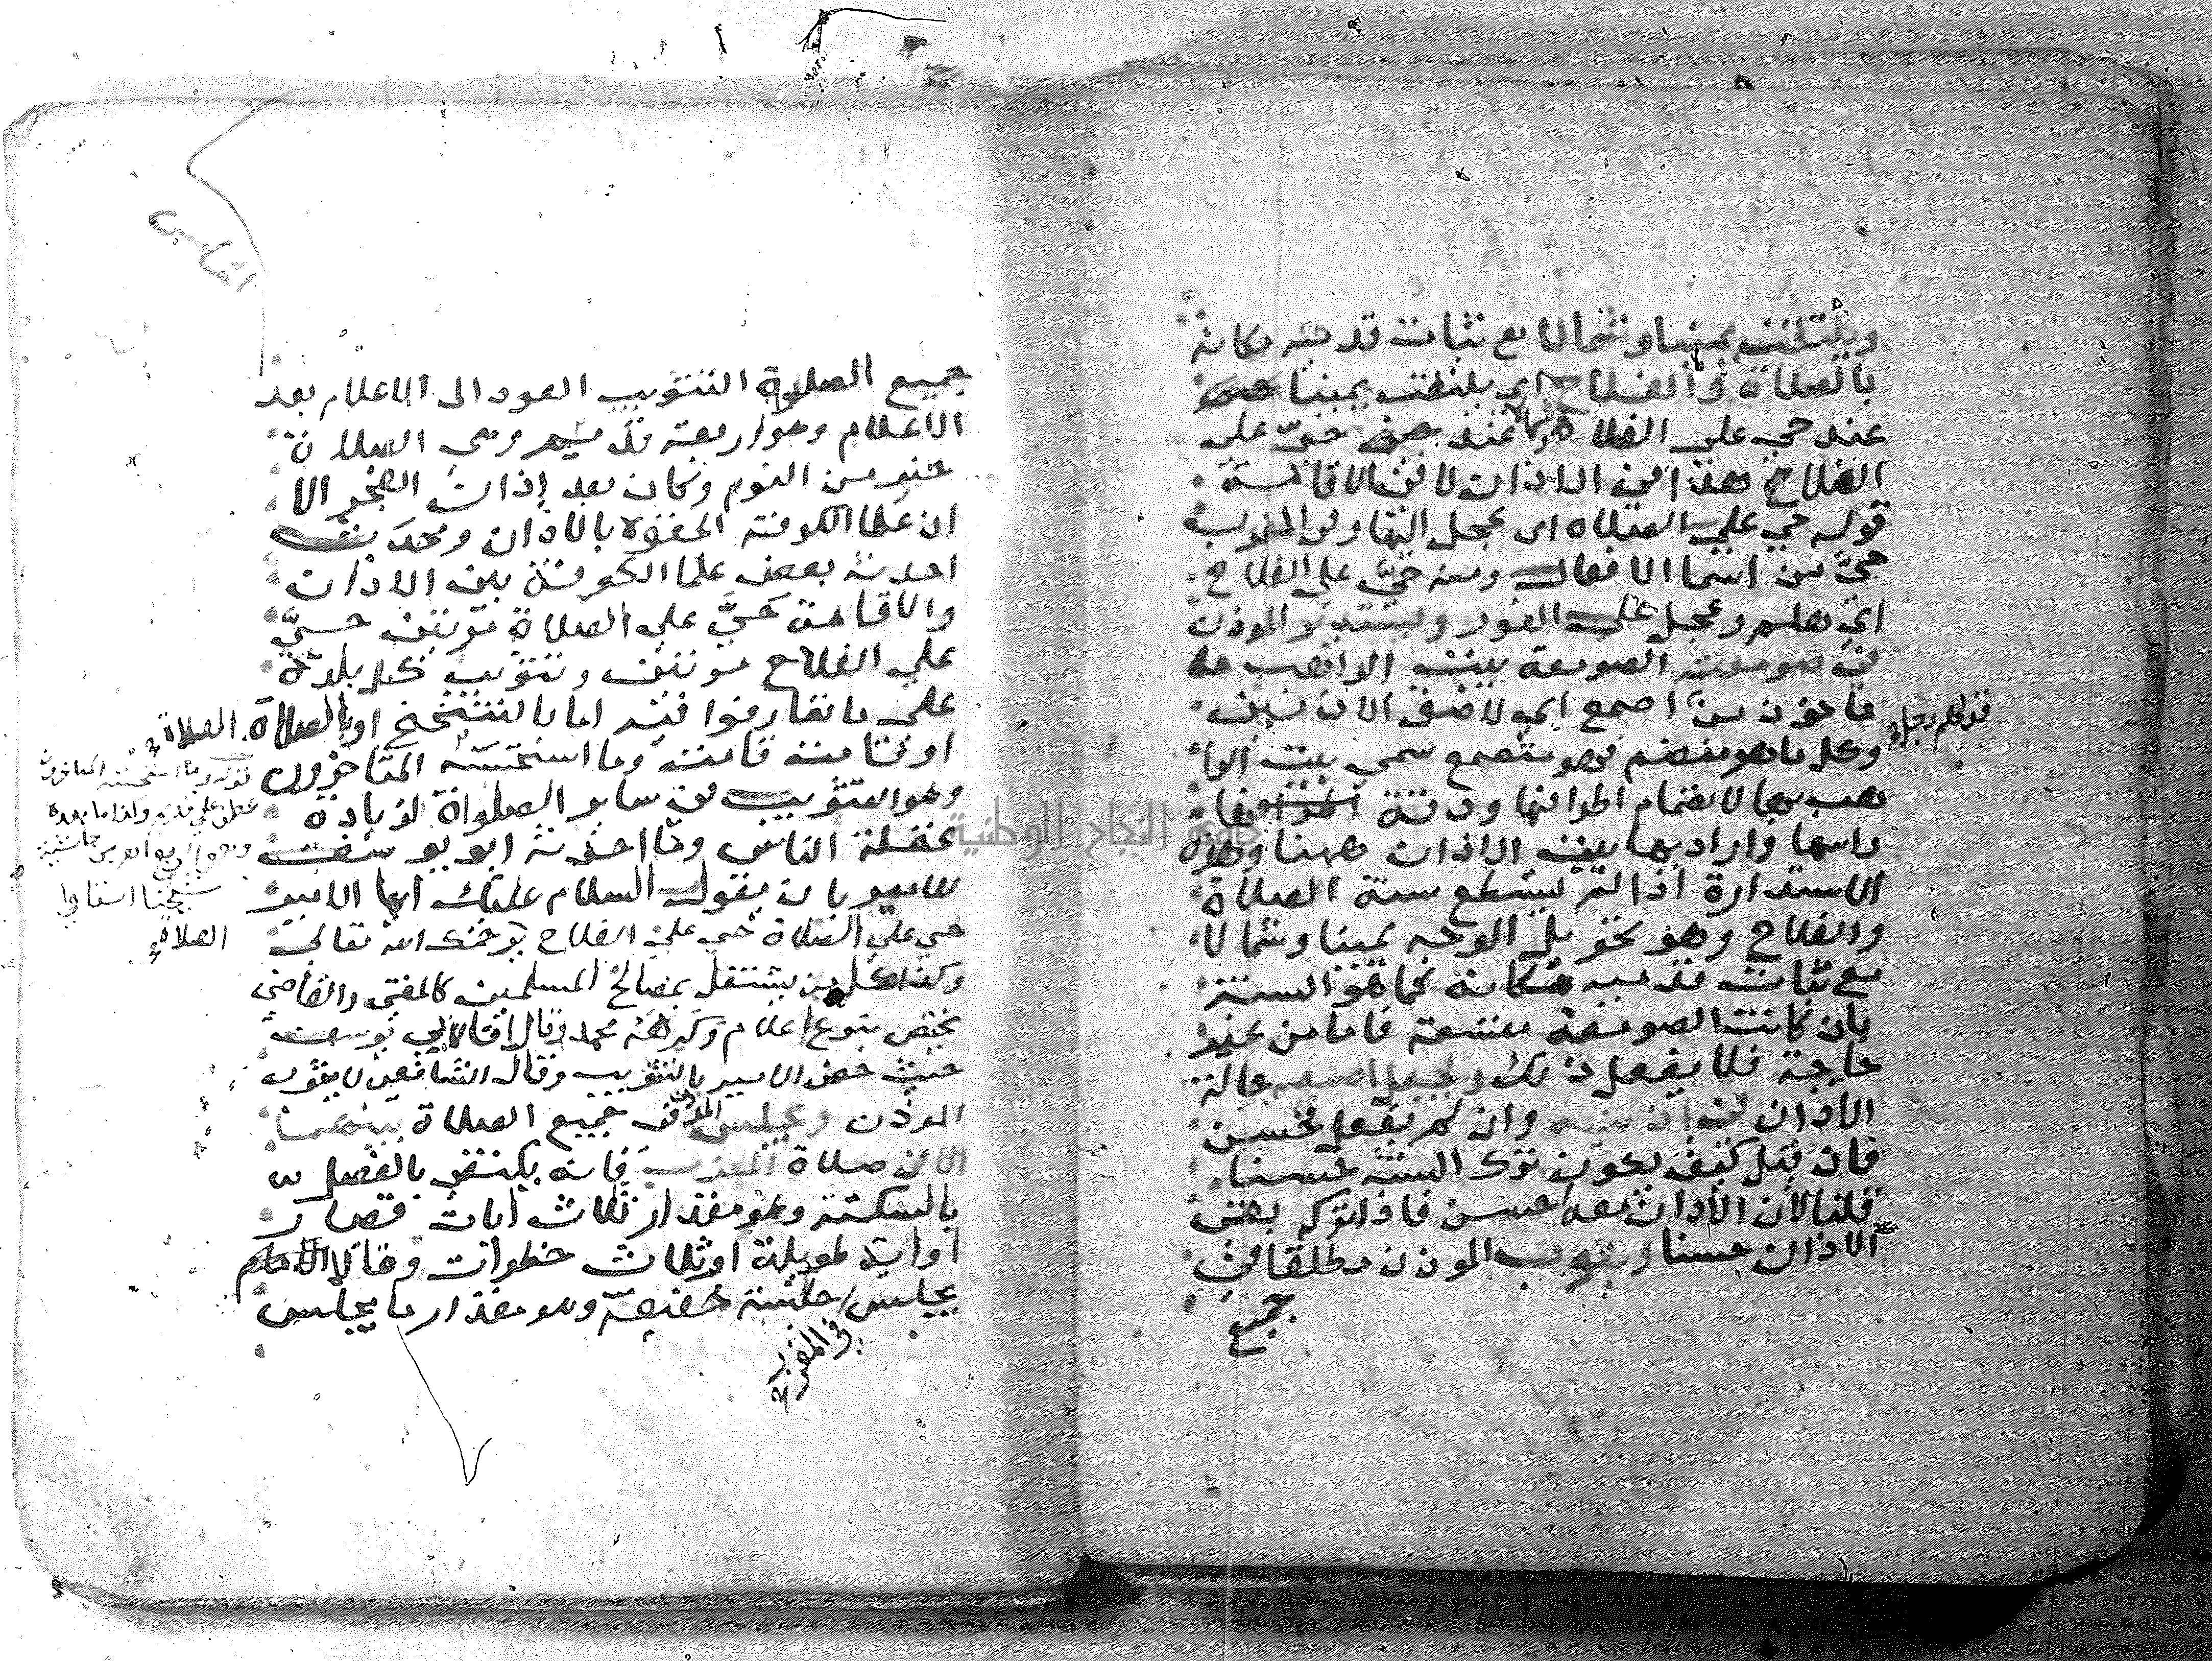 ويلتفت يمينا وشمالا مع ثبات قدميه مكانه
بالصلاة والفلاح اي يلتفت يمينا
عند حي على الصلاة وشمالا عند حي على
الفلاح هذا في الاذان لا في الاقامة
قوله حي على الصلاه اى عجل اليها وفي المغرب
حيَّ من اسما الافعال ومنه حيَّ على الفلاح
اي هلم وعجل على الفور ويستدير الموذن
في صومعته الصومعة بيت الراهب
ماخوذ من قولهم رجل اصمع اي لاصق الاذنين
وكل ما هو منضم فهو متصمع سمى بيت الرا
هب بها لانضمام اطرافها ودقة
راسها واراد بها بيت الاذان ههنا وهذه
الاستدارة اذا لم يستطع سنة الصلاة
والفلاح وهو تحويل الوجه يمينا وشمالا
مع ثبات قدميه مكانه كما هو السنة
بان كانت الصومعة متسعة فاما من غير
حاجة فلا يفعل ذلك ويجعل اصبعيه حالة
الاذان في اذنيه وان لم يفعل فحسن
فان قيل كيف يكون ترك السنة حسنا
قلنا لان الاذان معه احسن فاذا تركه بقى
الاذان حسنا ويثوب الموذن مطلقا في
جميع
جميع الصلاة التثويب العود الى الاعلام بعد
الاعلام وهو اربعة قديم وهي الصلاة
خير من النوم وكان بعد اذان الفجر الا
ان علما الكوفة الحقوه بالاذان ومحدث
احدثه بعض علما الكوفة بين الاذان
والاقامة حيَّ على الصلاة مرتين حيَّ
على الفلاح مرتين وتثويب كل بلدة
على ما تعارفوا فيه اما بالتنحنح او بالصلاة الصلاة
او قامت قامت وما استحسنه المتاخرون
وهو التثويب في ساير الصلواة لزيادة
غفلة الناس وما احدثه ابو يوسف
للامير بان يقول السلام عليك ايها الامير
حي على الصلاة حي على الفلاح يرحمك الله تعالى
وكذا كل من يشتغل بمصالح المسلمين كالمفتى والقاضي
يختص بنوع اعلام وكرهه محمد وقال افا لابي يوسف
حيث خص الامير بالتثويب وقال الشافعى لا يثوب
الموذن ويجلس الموذن في جميع الصلاة بينهما
الا في صلاة المغرب فانه يكتفى بالفصل
بالسكتة وهو مقدار ثلاث ايات قصار
او اية طويلة او ثلاث خطوات وقالا
يجلس في المغرب جلسة خفيفة وهو مقدار ما يجلس
قوله وما استحسنه المتاخرون
عطف على قديم وكذا ما بعده
شيخنا
الصلاة
جامعة النجاح الوطنية